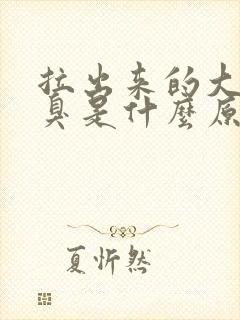 拉出来的大
臭是什麼原
夏忻然